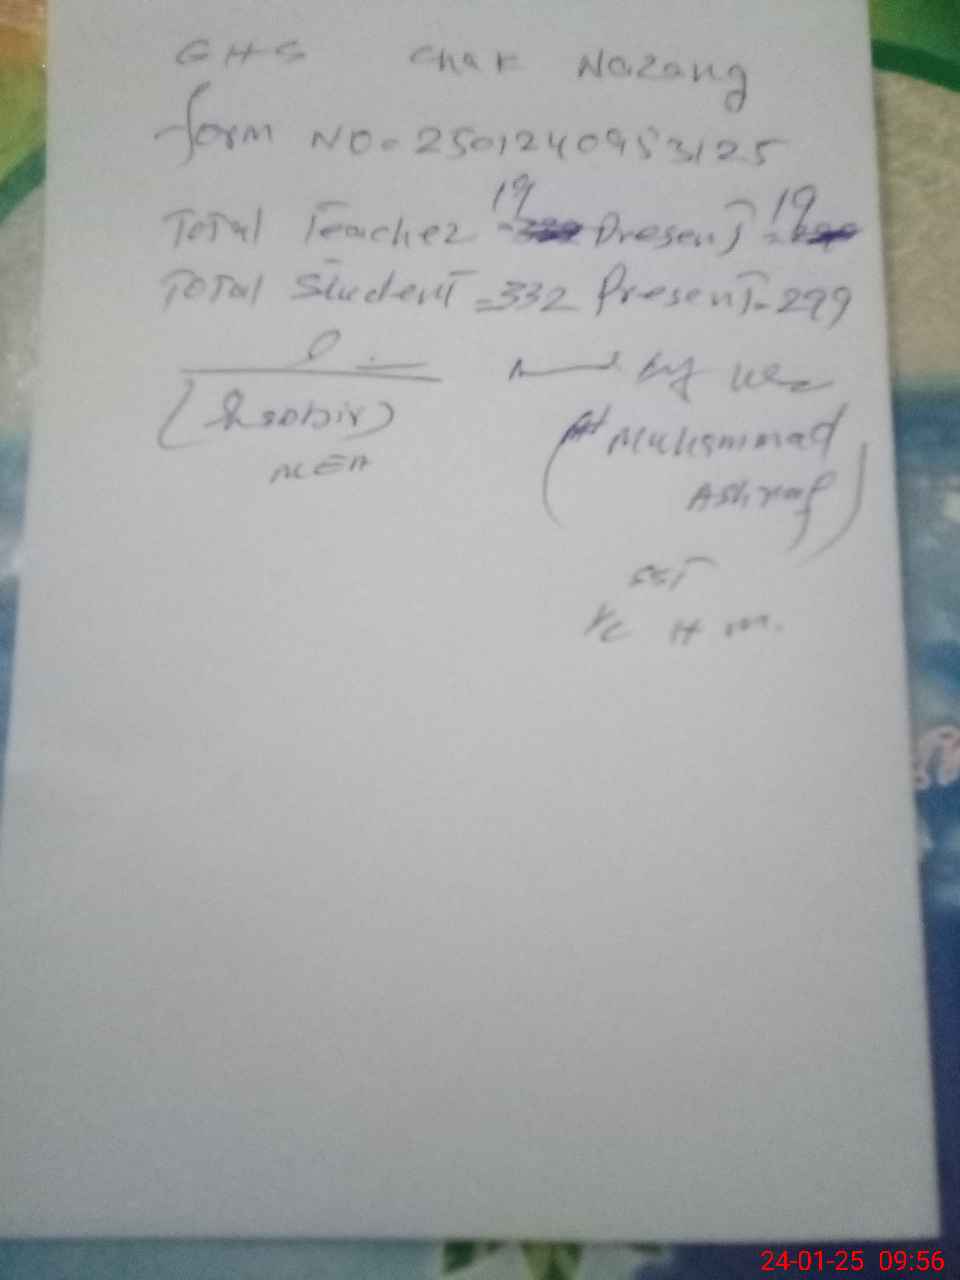 GHS Chak Nazang
form NO. 2501240953125
19 19
Total Teacher Present
Total Student =332 Present-299
(Shabbir)
MEA
Muhammad
Ashraf
SST
I/C H M.
24-01-25 09:56